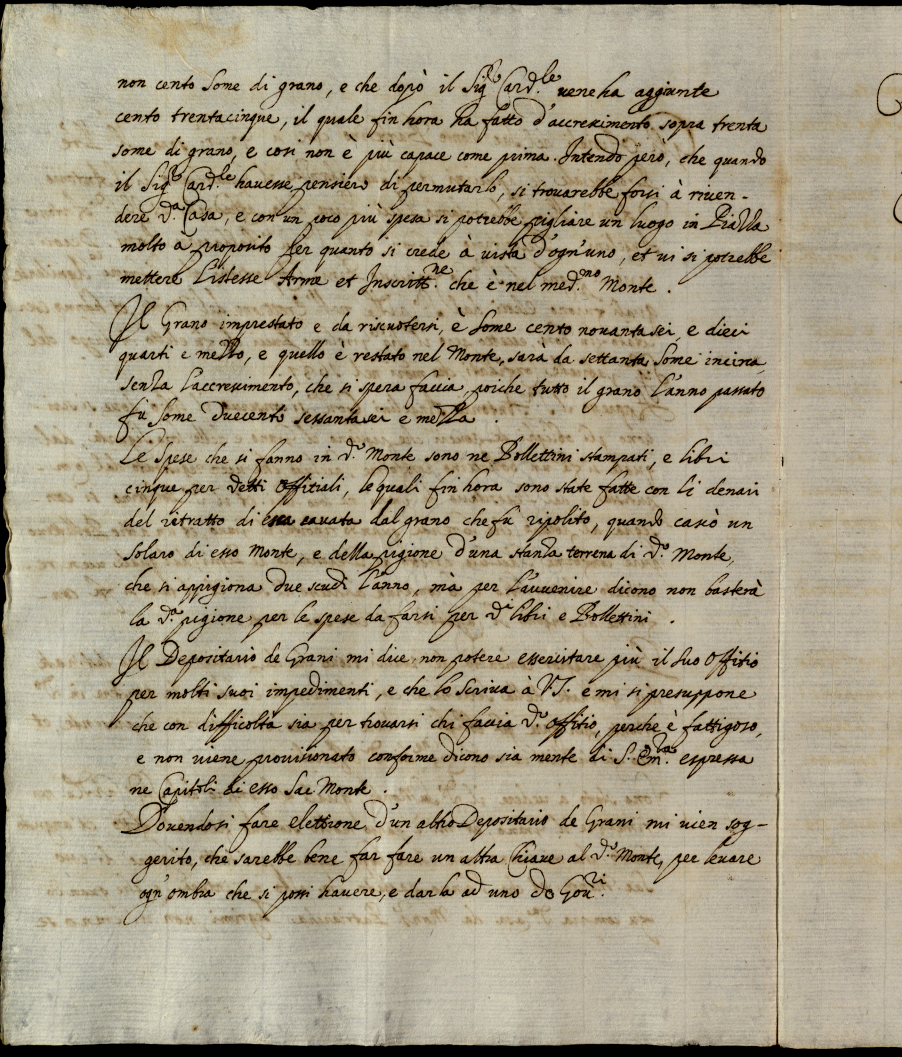 non cento some di grano, e che dopò il Sig.r Card.le vene ha aggiunte
cento trentacinque, il quale fin hora ha fatto d'accrescimento sopra trenta
some di grano, e così non è più capace come prima. Intendo però, che quando
il Sig.r Card.le havesse pensiero di permutarlo, si trouarebbe forsi à riuen-
dere d.a Casa, e con un poco più spesa si potrebbe pigliare un luogo in Piazza
molto a proposito per quanto si crede à vista d'ogn'uno, et vi si potrebbe
mettere l'istesse Arme et Inscritt.ne che è nel med.mo Monte.
Il Grano imprestato e da riscuotersi, è some cento nouanta sei, e dieci
quarti e mezzo, e quello è restato nel Monte, sarà da settanta some incirca,
senza l'accrescimento, che si spera faccia, poiche tutto il grano l'anno passato
fù some duecento sessantasei e mezza.
Le spese che si fanno in d.o Monte sono ne Bollettini stampati, e libri
cinque per detti offitiali, le quali fin hora sono state fatte con li denari
del ritratto di essa cauata dal grano che fù ripolito, quando cascò un
solaro di esso Monte, e della pigione d'una stanza terrena di d.o Monte,
che si appigiona due scudi l'anno, mà per l'auuenire dicono non basterà
la d.a pigione per le spese da farsi per d.i libri e Bollettini.
Il Depositario de Grani mi dice, non potere essercitare più il suo offitio
per molti suoi impedimenti, e che lo scriua à V.S. e mi si presuppone
che con difficoltà sia per trouarsi chi faccia d.o offitio, perche è fattigoso,
e non viene prouisionato conforme dicono sia mente di S. Em.za espressa
ne Capitoli di esso Sac Monte.
Douendosi fare elettione d'un altro Depositario de Grani mi vien sog-
gerito, che sarebbe bene far fare un altra Chiaue al d.o Monte, per leuare
ogn'ombra che si possi hauere, e darla ad uno de Gou.ri